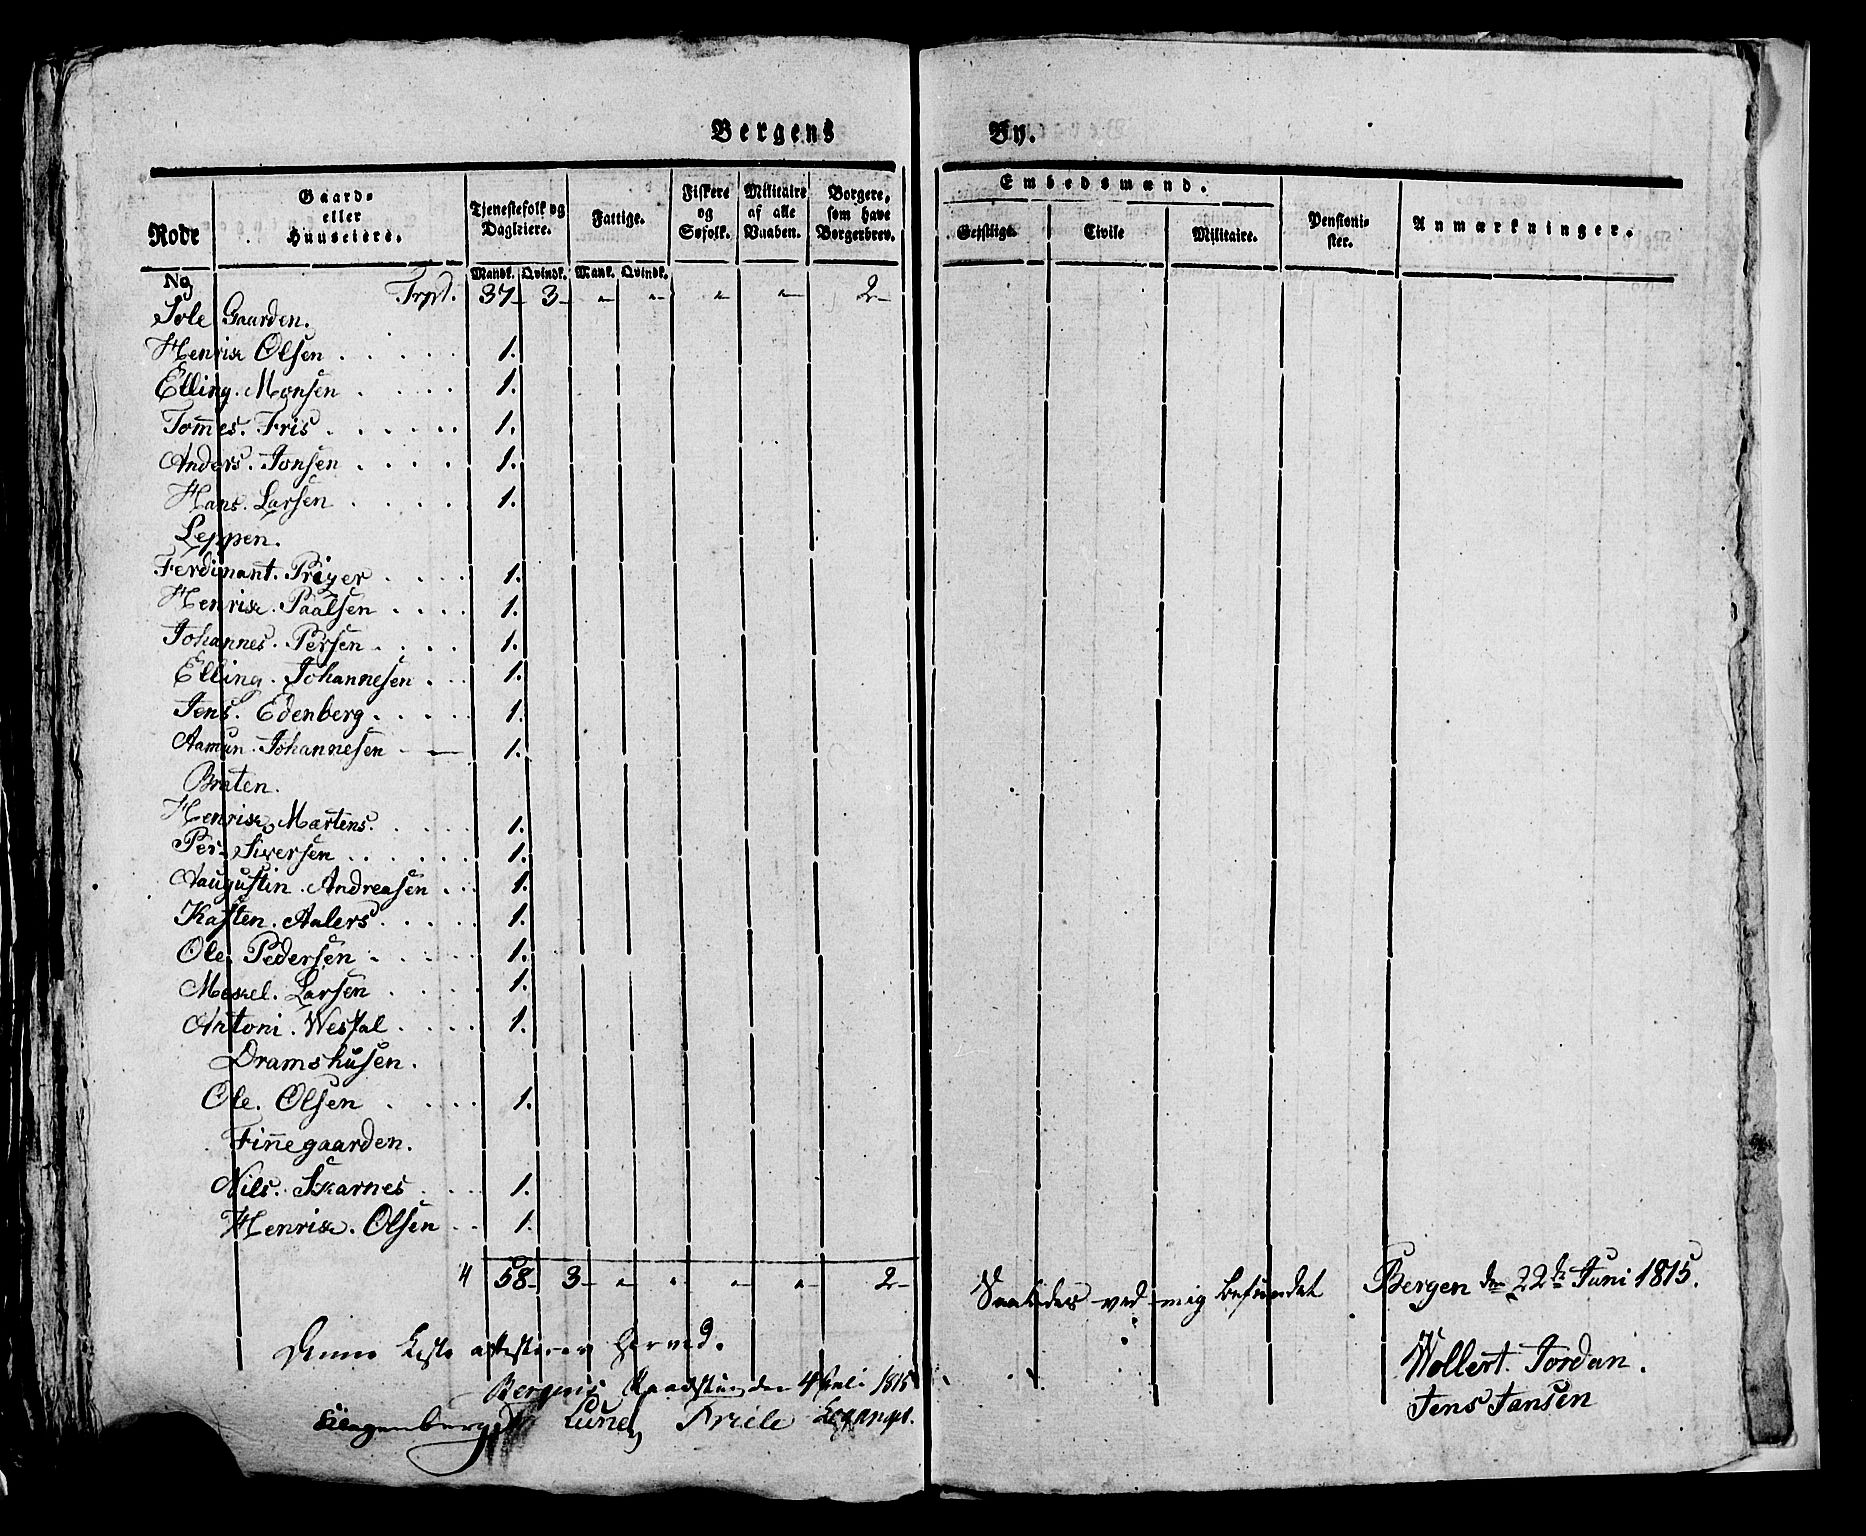 Bergens By.
Rode
Gaard-
eller
Huuseiere.
Tjenestefolk og
Dagleiere.
Fattige.
Fiskere
og
Søfolk.
Militaire
af alle
Vaaben.
Borgere,
som have
Borgerbrev.
Embedsmænd.
Gejstlige.
Civile
Militaire.
Pensioni-
ster.
Anmærkninger.
Mandk. Qvindk. Mank. Qvindk.
No Trpt. 37 - 3 - " " " " 2 -
Sole Gaarden.
Henrik Olsen . . . . . 1.
Elling. Monsen . . . . 1.
Tom̄es. Fris . . . . . . 1.
Anders. Jonsen . . . . 1.
Hans. Larsen . . . . 1.
Leppen.
Ferdinant. Prøyer . . . . 1.
Henrik. Paalsen . . . . 1.
Johannes. Persen . . . . 1.
Elling. Johannesen . . . 1.
Jens. Edenberg . . . . . 1.
Aamun. Johannesen - — 1.
Braten.
Henrik Martens. . . . . 1.
Per. Siversen . . . . . . 1.
Aaugustin. Andreasen . . . 1.
Kasten. Aalers . . . . . 1.
Ole. Pedersen . . . . . 1.
Mekel. Larsen . . . . 1.
Antoni. Westal . . . . 1.
Dramshusen.
Ole. Olsen . . . . 1.
Fin̄egaarden.
Nils. Skarnes . . . 1.
Henrik. Olsen . . 1.
4 58 - 3 - " " " " 2 -
Saaledes ved mig befundet Bergen den 22de Juni 1815.
Denne Liste attesteres herved.
Wollert. Jordan.
Bergens Raadstue den 4 Juli 1815
Jens Jansen
Friele